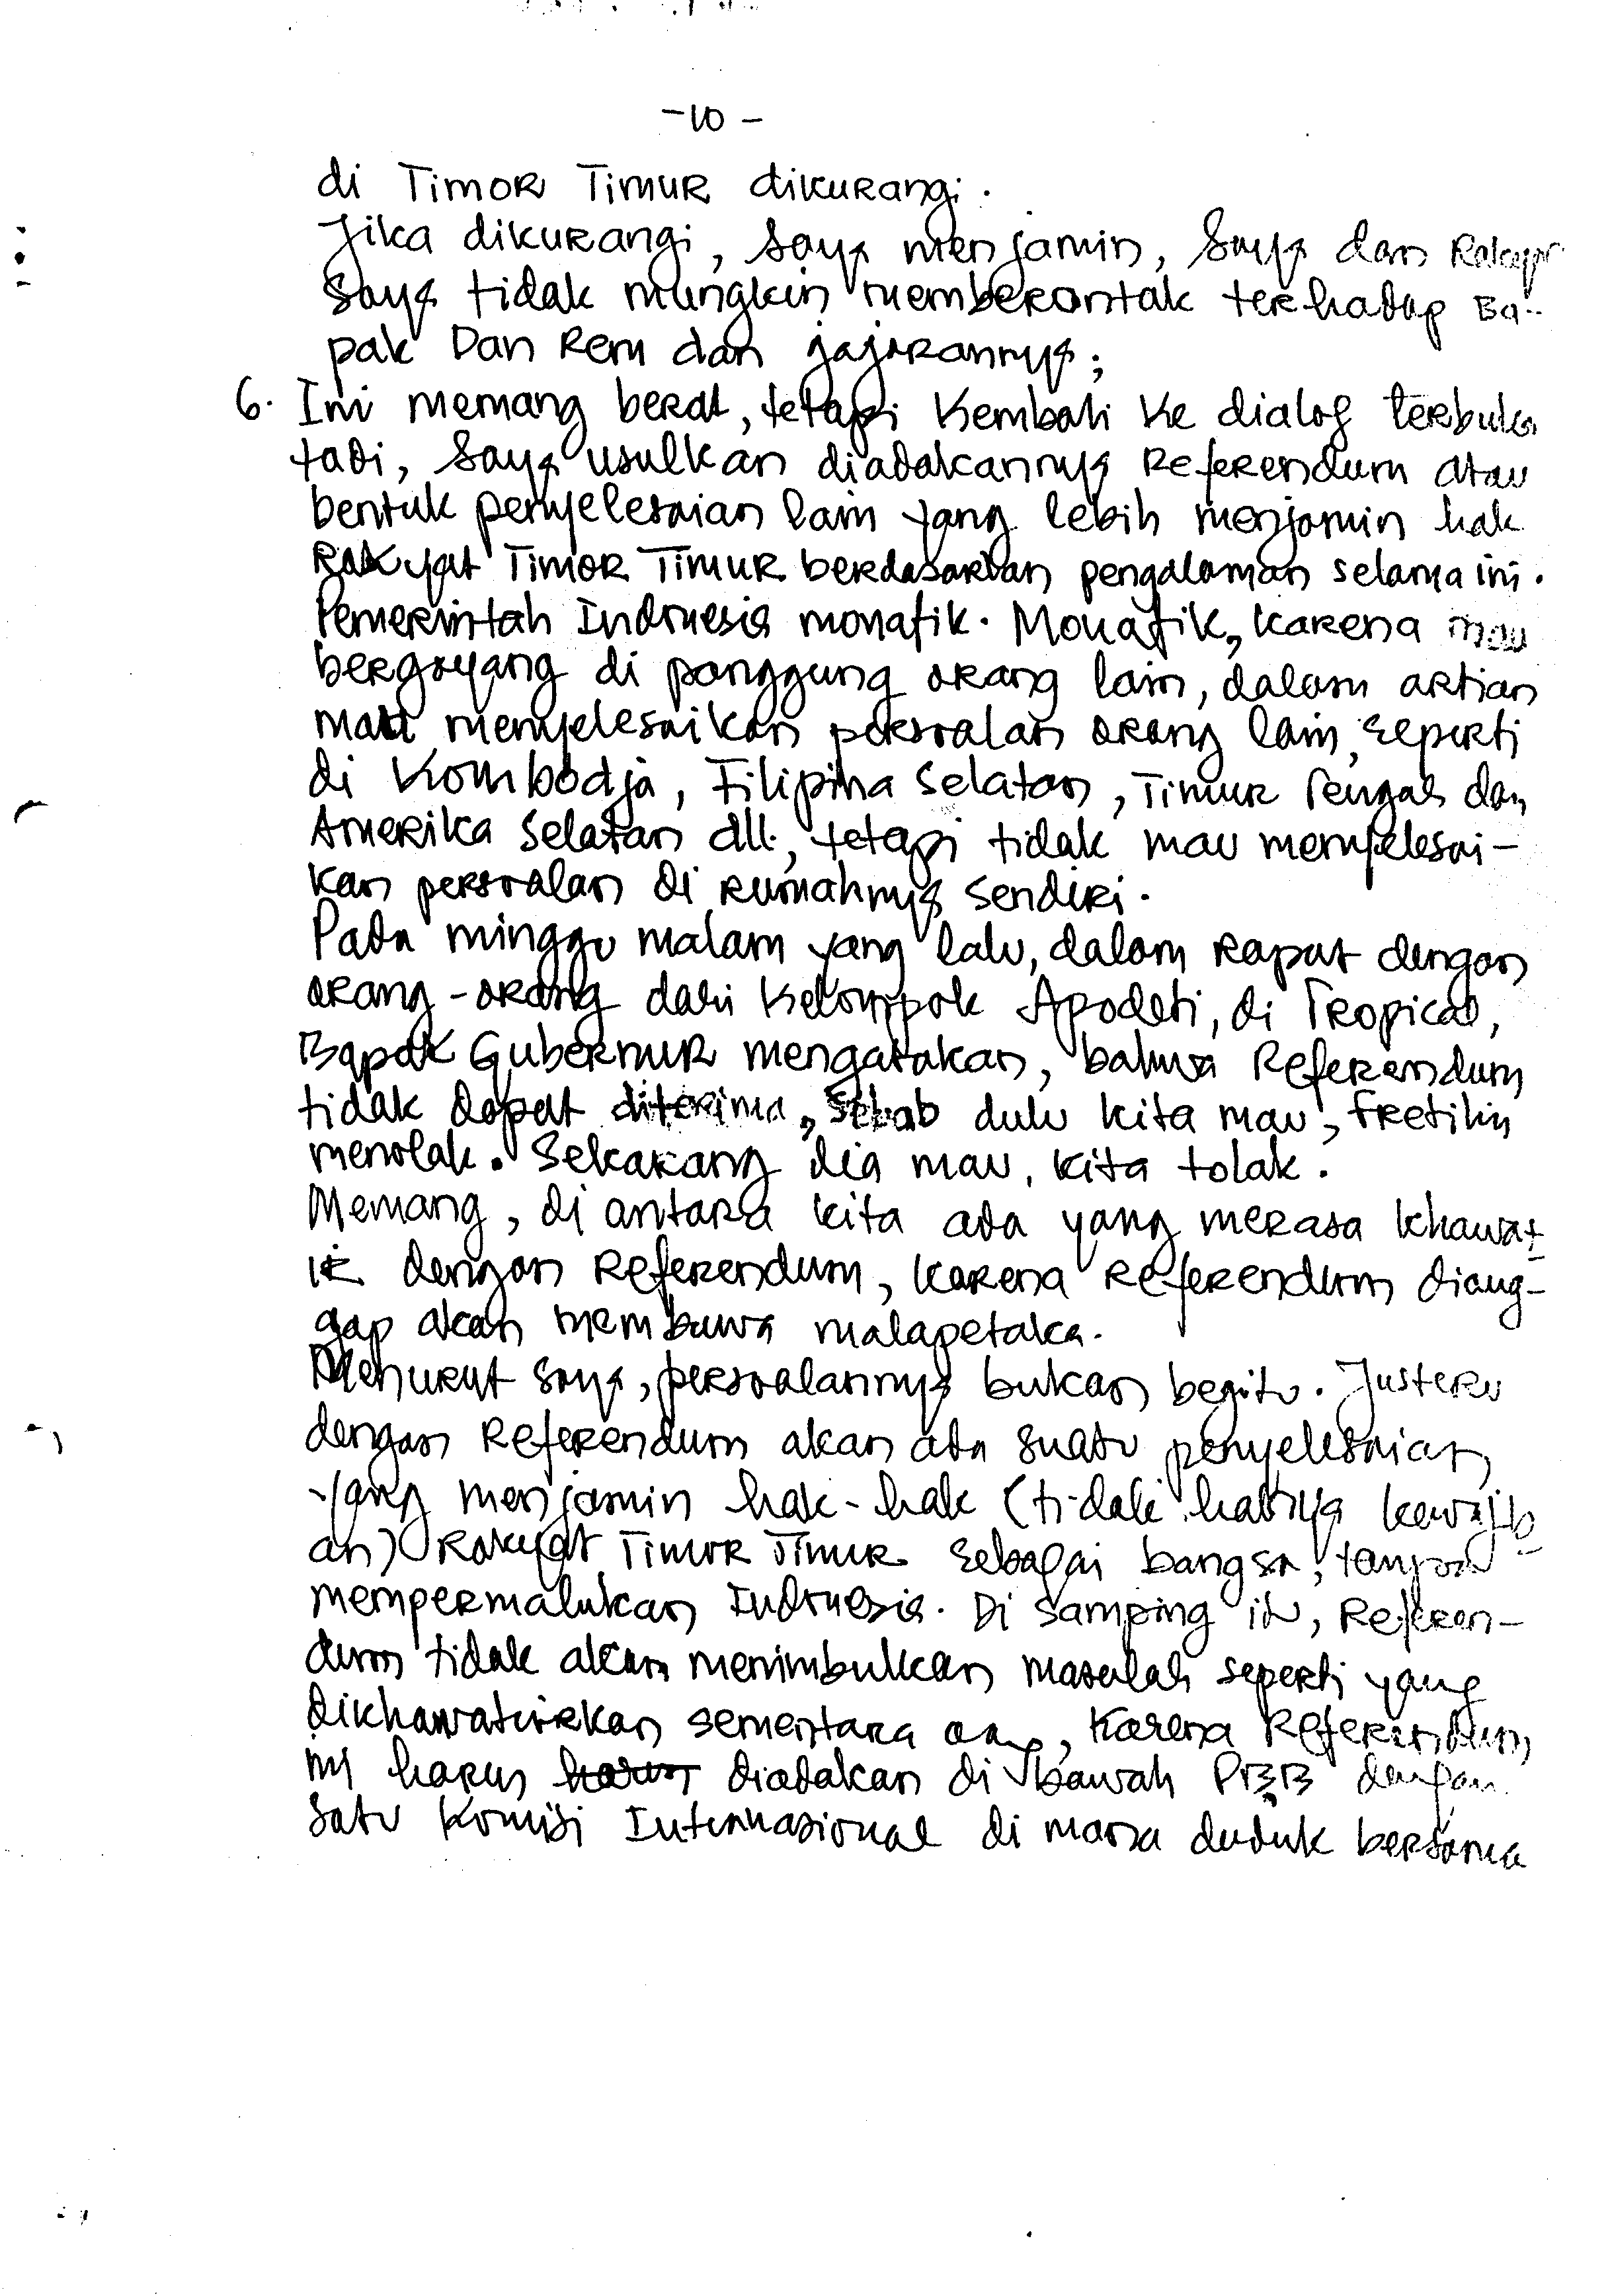 -10-
di Timor Timur dikurangi.
Jika dikurangi, saya menjamin, saya dan Rakyat
saya tidak mungkin memberontak terhadap Ba-
pak Dan Rem dan jajarannya;
6. Ini memang berat, tetapi kembali ke dialog terbuka
tadi, saya usulkan diadakannya Referendum atau
bentuk penyelesaian lain yang lebih menjamin hak
Rakyat Timor Timur berdasarkan pengalaman selama ini.
Pemerintah Indonesia monafik. Monafik, karena mau
bergoyang di panggung orang lain, dalam artian
mau menyelesaikan persoalan orang lain, seperti
di Kombodja, Filipina Selatan, Timur Tengah dan
Amerika Selatan dll., tetapi tidak mau menyelesai-
kan persoalan di rumahnya sendiri.
Pada minggu malam yang lalu, dalam rapat dengan
orang-orang dari Kelompok Apodeti, di Tropical,
Bapak Gubernur mengatakan, bahwa Referendum
tidak dapat diterima, sebab dulu kita mau, Fretilin
menolak. Sekarang dia mau, kita tolak.
Memang, di antara kita ada yang merasa khawat-
ir dengan Referendum, karena Referendum diang-
gap akan membawa malapetaka.
Menurut saya, persoalannya bukan begitu. Justeru
dengan Referendum akan ada suatu penyelesaian
yang menjamin hak-hak (tidak hanya kewajib-
an) Rakyat Timor Timur sebagai bangsa, tanpa
mempermalukan Indonesia. Di samping itu, Referen-
dum tidak akan menimbulkan masalah seperti yang
dikhawatirkan sementara, karena Referendum
ini harus harus diadakan di bawah PBB dengan
satu Komisi Internasional di mana duduk bersama